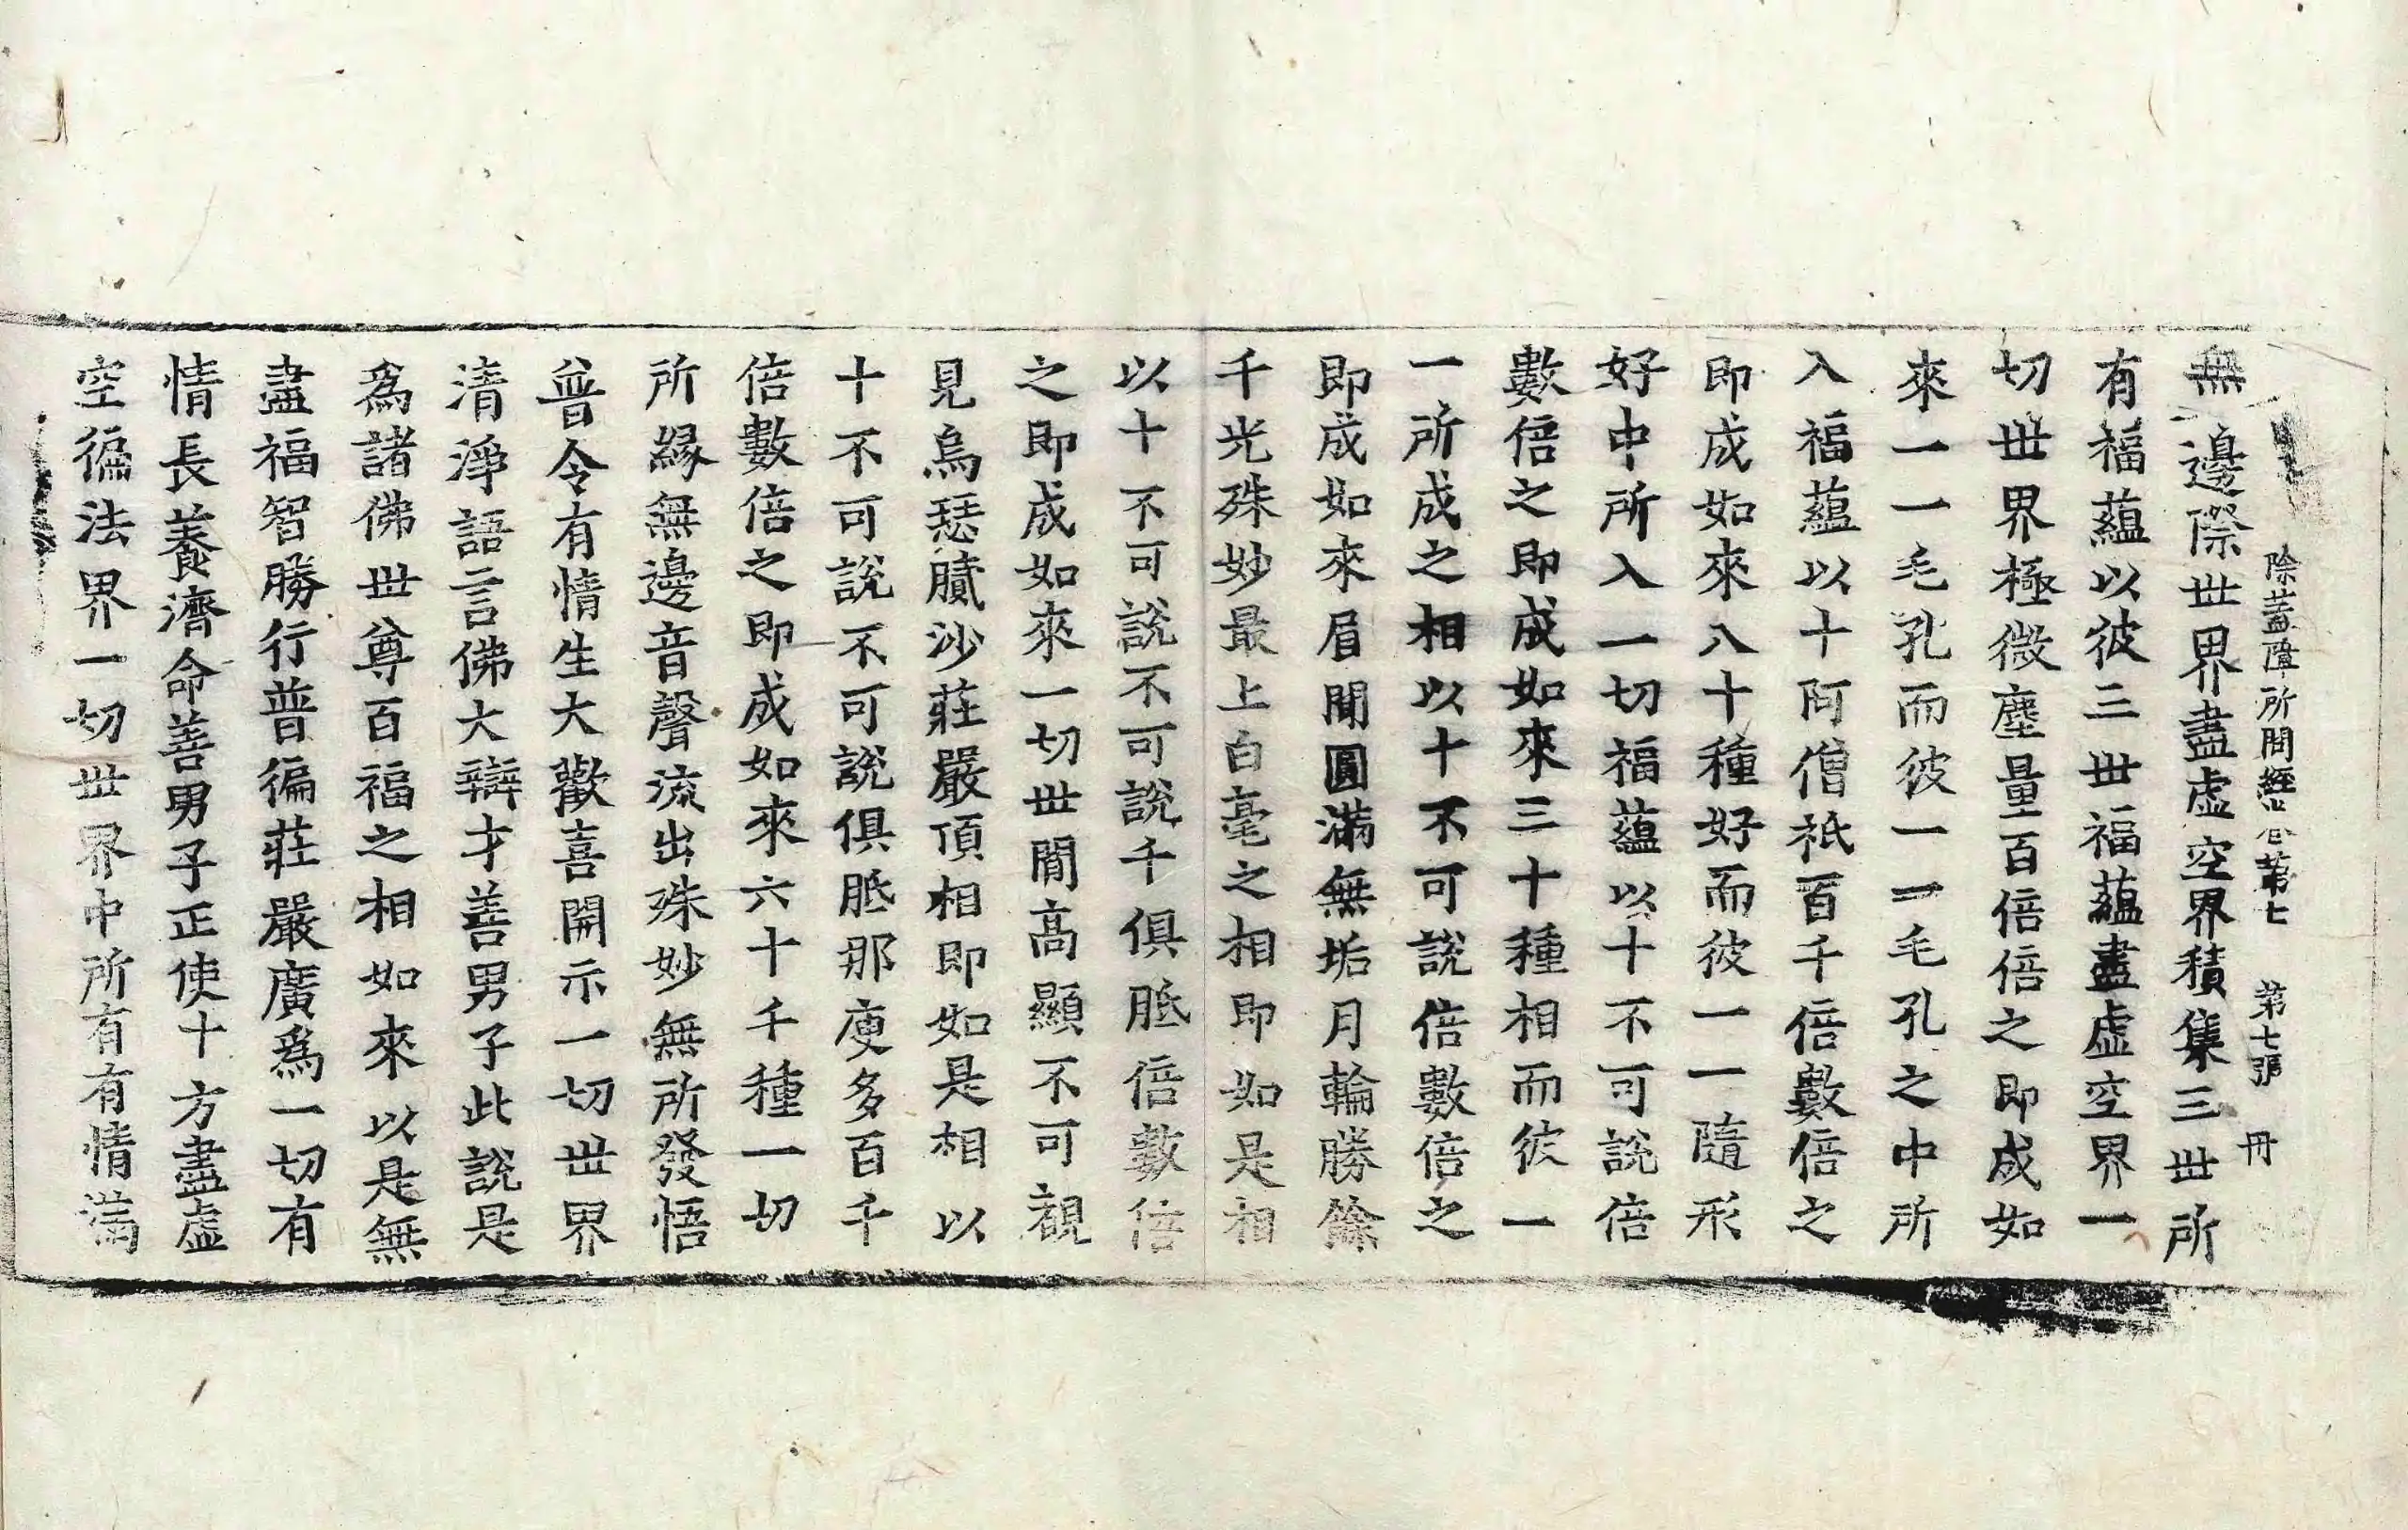 除蓋障所問經卷第七　第七張　冊
無邊際世界盡虛空界積集三世所
有福蘊以彼三世福蘊盡虛空界一
切世界極微塵量百倍倍之即成如
來一一毛孔而彼一一毛孔之中所
入福蘊以十阿僧祇百千倍數倍之
即成如來八十種好而彼一一隨形
好中所入一切福蘊以十不可說倍
數倍之即成如來三十種相而彼一
一所成之相以十不可說倍數倍之
即成如來眉間圓滿無垢月輪勝餘
千光殊妙最上白毫之相即如是相
以十不可說不可說千俱胝倍數倍
之即成如來一切世間高顯不可覩
見烏瑟膩沙莊嚴頂相即如是相以
十不可說不可說俱胝那庾多百千
倍數倍之即成如來六十千種一切
所緣無邊音聲流出殊妙無所發悟
普令有情生大歡喜開示一切世界
清淨語言佛大辯才善男子此說是
爲諸佛世尊百福之相如來以是無
盡福智勝行普徧莊嚴廣爲一切有
情長養濟命善男子正使十方盡虛
空徧法界一切世界中所有有情滿